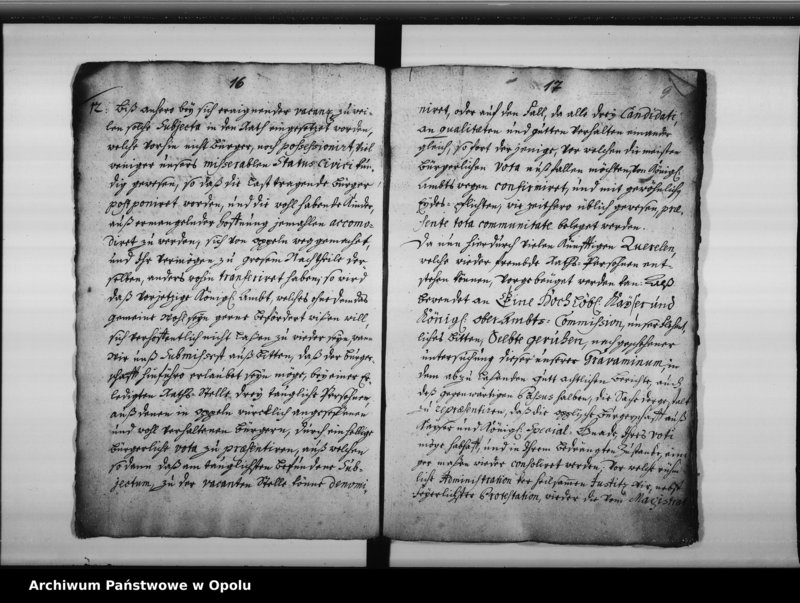 16
12. Biß anhero bey sich eraignender vacanz zuwei-
len solche Subjecta in den Rath eingesetzt worden,
welche vorhin nicht Bürger, noch possessionirt, viel
weniger unsers miserablen Status Civici kün-
dig gewesen, so daß die Last tragende Bürger
postponiret worden, und die wohl habende Kinder,
auß ermangelnder hoffnung jemahlen accomo-
diret zu werden, sich von Oppeln weg gemachet,
und Ihr Vermögen zu grosen Nachtheile der
selben, anders wohin transferiret haben; so wird
daß vorjetzige Königl. Ambt, welches ehe dem das
gemeine Wohlseyn gerne befördert wissen will,
sich verhoffentlich nicht lassen zu wieder seyn, wann
Wir unß submissest auß bitten, daß der Bürger-
schafft hinführo erlaubet seyn möge, bey einer Er-
ledigten Raths-Stelle, drey taugliche Persohnen,
auß denen in Oppeln würcklich angesessenen
und wohl verhaltenen Bürgern, durch einhellige
Bürgerliche vota zu praesentiren, auß welchen
so dann daß am tauglichsten befundene Sub-
jectum, zu der vacanten Stelle könne denomi-
17
9
niret, oder auf den Fall, da alle drey Candidati,
an qualitäten und guttem Verhalten einander
gleich, so dort derjenige, vor welchen die meisten
Bürgerlichen Vota außfallen möchten, von Königl.
Ambts wegen confirmiret, und mit gewöhnlich
Eydes-Pflichten, wie bißhero üblich gewesen, prae-
sente tota communitate beleget werden.
Da nun hierdurch vielen künfftigen Querelen,
welche wieder frembde Raths-Persohnen ent-
stehen können, vorgebeuget werden kan: Alß
an Eine Hochlöbl. Kayser und
Königl. ober Ambts-Commission, unser
liches bitten, Selbte geruhen, nach geschehener
untersuchung dieser unserer Gravaminum, in
dem abzu laßenden gutt achtlichen Berichte, auch
deß gegenwärtigen Passus halber, die Sache dergestalt
zu repraesentiren, daß die Oppelische Bürgerschafft auß
Kayser und Königl. Special-Gnade, Ihres voti
möge habhafft, und in Ihrem bedrängten Zustande, eini-
ger maßen wieder consoliret werden. Vor welche
liche Administration der heilsamen Justitz wir, nebst
Protestation, wieder die vom Magistrat
Archiwum Państwowe w Opolu